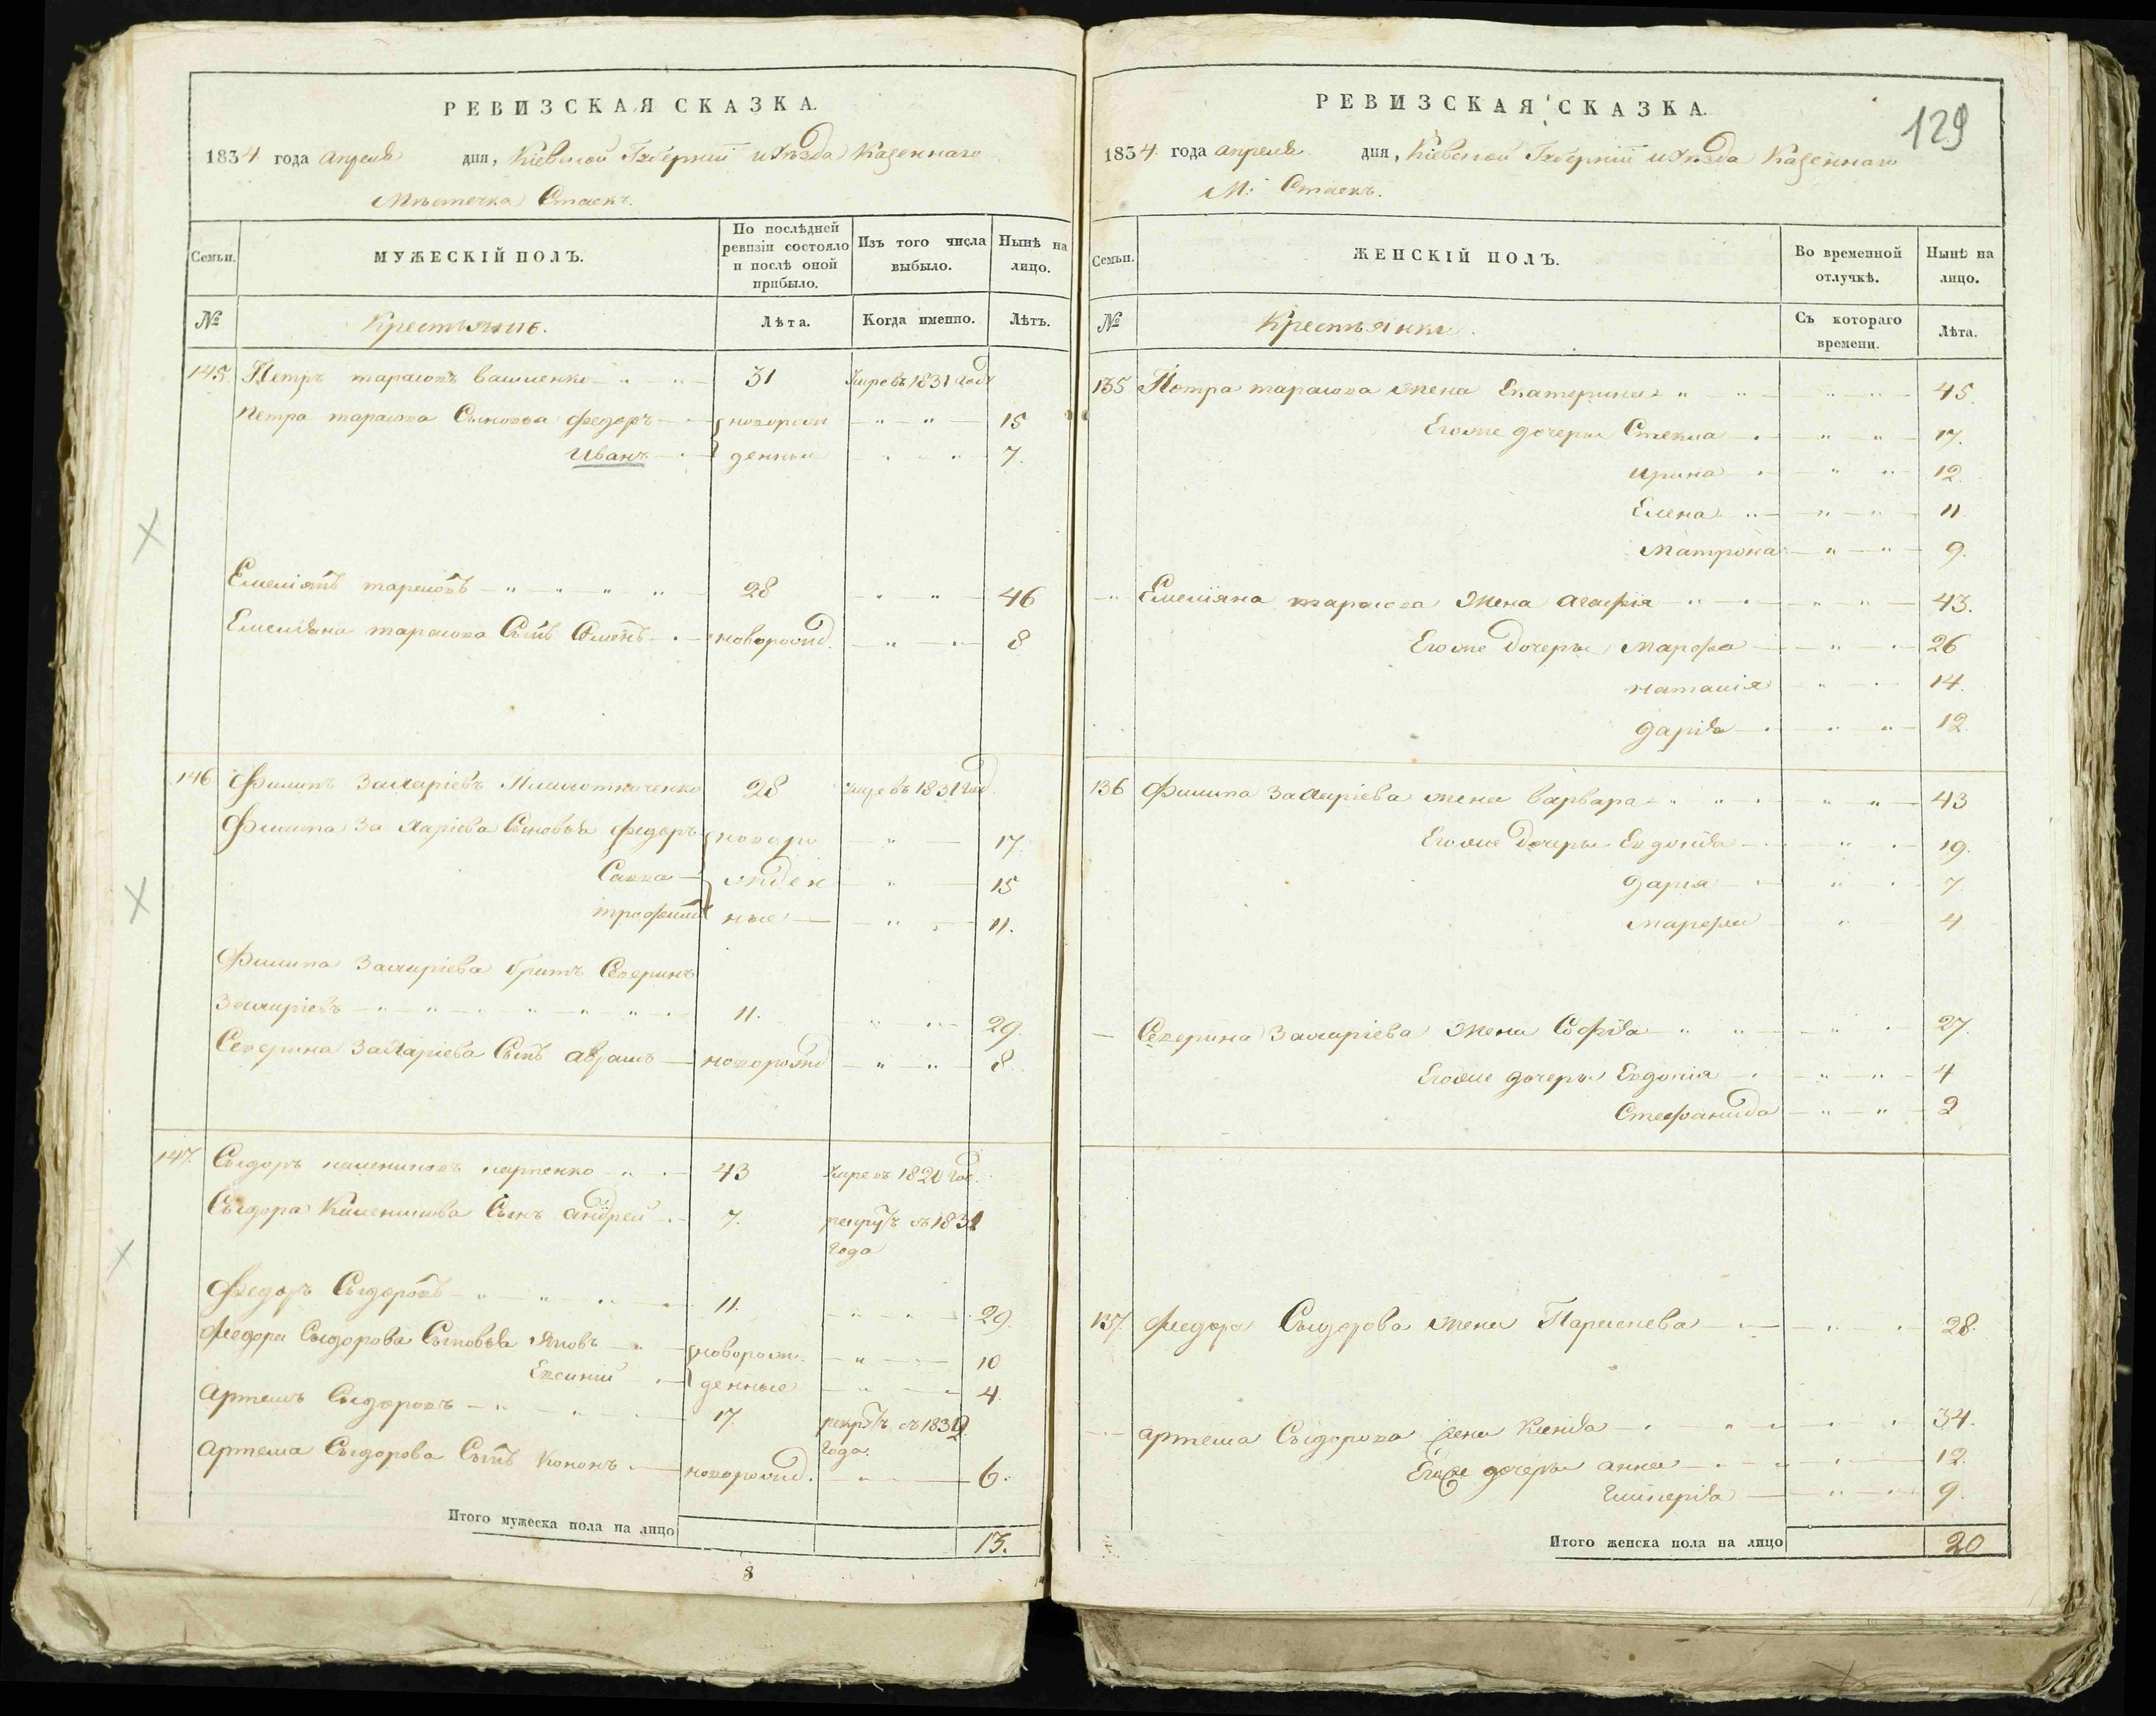 РЕВИЗСКАЯ СКАЗКА.
1834 года апреля дня, Кіевской Губерніи и Уѣзда Казеннаго
Мѣстечка Стаекъ.
Семьи.
МУЖЕСКІЙ ПОЛЪ.
По послѣдней
ревизіи состояло
и послѣ оной
прибыло.
Изъ того числа
выбыло.
Нынѣ на
лицо.
№
Крестьянъ.
Лѣта.
Когда именно.
Лѣтъ.
145. Петръ тарасовъ 31 Умре въ 1831 годѣ
Петра тарасова Сыновья федоръ новорож 15
Иванъ денные 7.
Емеліянъ тарасовъ 28 46
Емеліяна тарасова Сынъ Семенъ новорожд. 8
146 Филипъ Захаріевъ 28 Умре въ 1831 год.
Филипа Захаріева Сыновья федоръ новоро 17.
Савва жден 15
трофимъ ные 11.
Филипа Захаріева братъ Северинъ
Захаріевъ 11. 29.
Северина Захаріева Сынъ Абрамъ новорожд 8.
147. Сыдоръ калениковъ карпенко 43 Умре въ 1820 год.
Сыдора Каленикова Сынъ андрей 7. рекрутъ съ 1831
Года
Федоръ Сыдоровъ 11. 29.
Федора Сыдорова Сыновья Яковъ новорож. 10
денные 4.
Артемъ Сыдоровъ 17. рекрутъ съ 1832
Года.
Артема Сыдорова Сынъ Кононъ новорожд. 6.
Итого мужеска пола на лицо 13.
8
РЕВИЗСКАЯ СКАЗКА.
129
1834 года апреля дня, Кіевской Губерніи и Уѣзда Казеннаго
М: Стаекъ.
Семьи.
ЖЕНСКІЙ ПОЛЪ.
Во временной
отлучкѣ.
Нынѣ на
лицо.
№
Крестьянки.
Съ котораго
времени.
Лѣта.
135 Петра тарасова жена Екатерина 45.
Егоже дочери Стекла 17.
Ирина 12.
Елена 11
Матрона 9.
Емеліяна тарасова жена Агафія 43.
Егоже Дочери Марфа 26
наталія 14.
Дарія 12.
136 Филипа Захаріева жена варвара 43
Егоже Дочери Евдокія 19.
Дарія 7.
Марфа 4
Северина Захаріева жена Софія 27.
Егоже дочери Евдокія 4
Стефанида 2
137. Федора Сыдорова жена Параскева 28.
артема Сыдорова жена Ксенія 34.
Егоже дочери анна 12.
Гликерія 9.
Итого женска пола на лицо 20